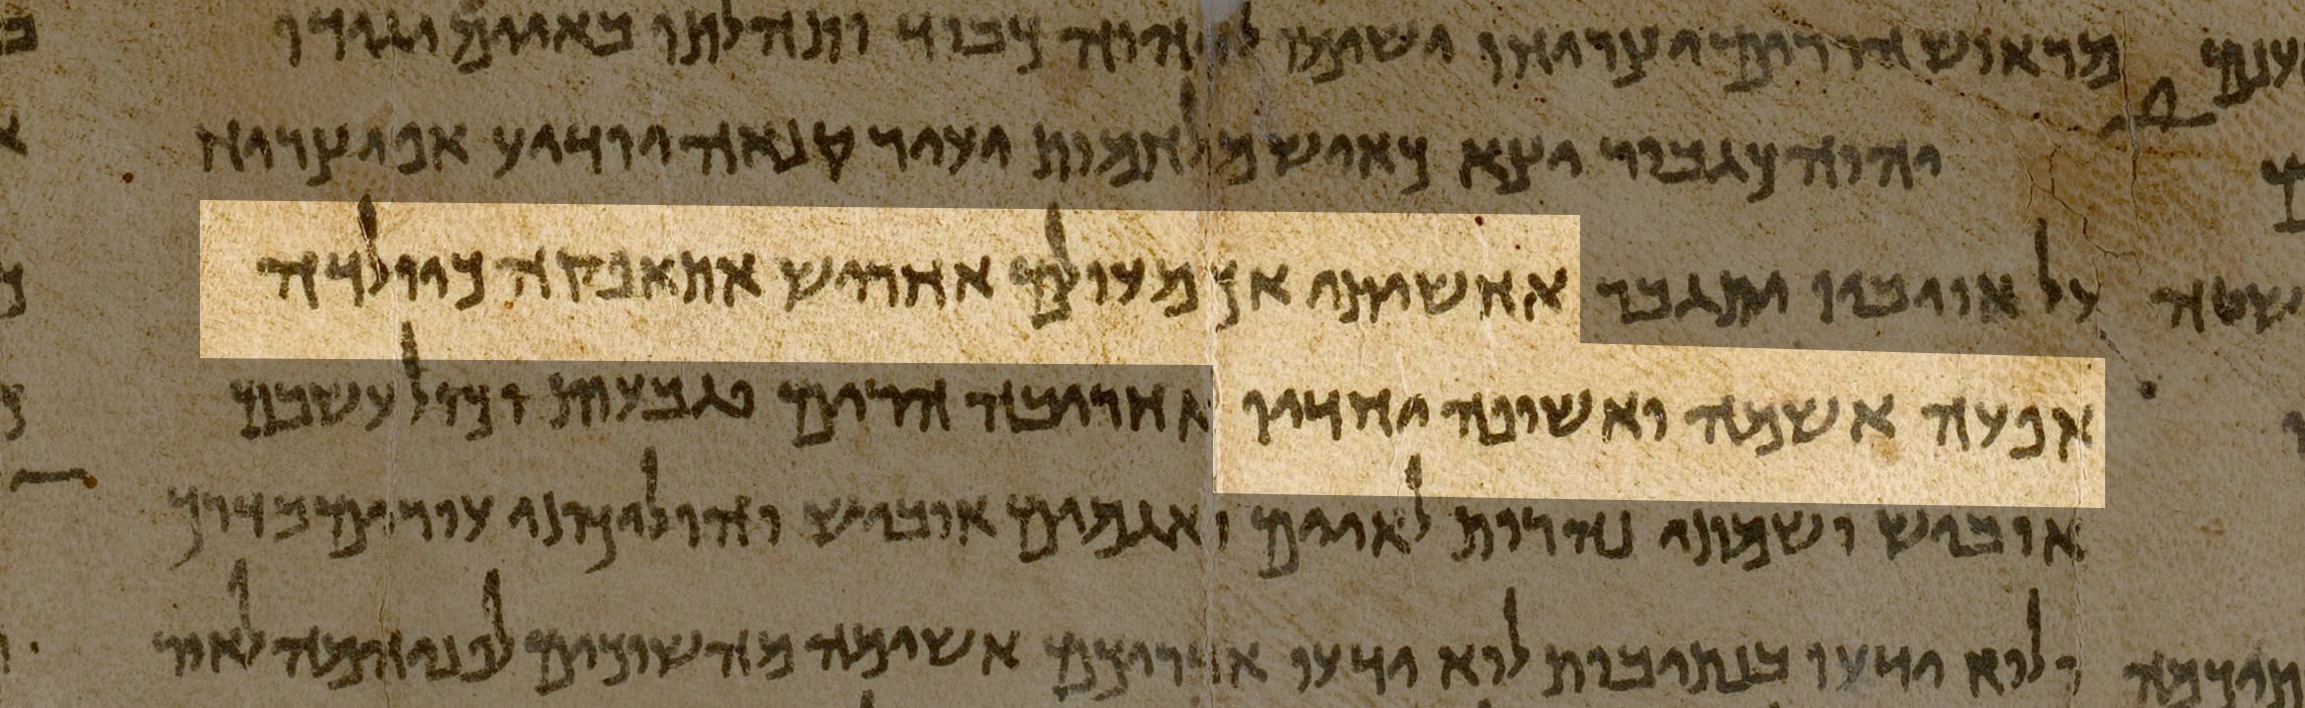 מראוש הררים יצריחו ישימו ליהוה כבוד ותהלתו באיים יגידו
יהוה כגבור יצא כאיש מלחמות יעיר קנאה יודיע אפ יצריח
על אויביו יתגבר אחשיתי אך מעולם אחריש אתאפקה כיולדה
אפעה אשמה ואשופה יחדיו אחריבה הרים וגבעות וכול עשבם
אוביש ושמתי נהרות לאיים ואגמים אוביש והולכתי עורים בדרך
ולוא ידעו בנתיבות לוא ידעו אדריכם אשימה מחשוכים לפניהמה לאור